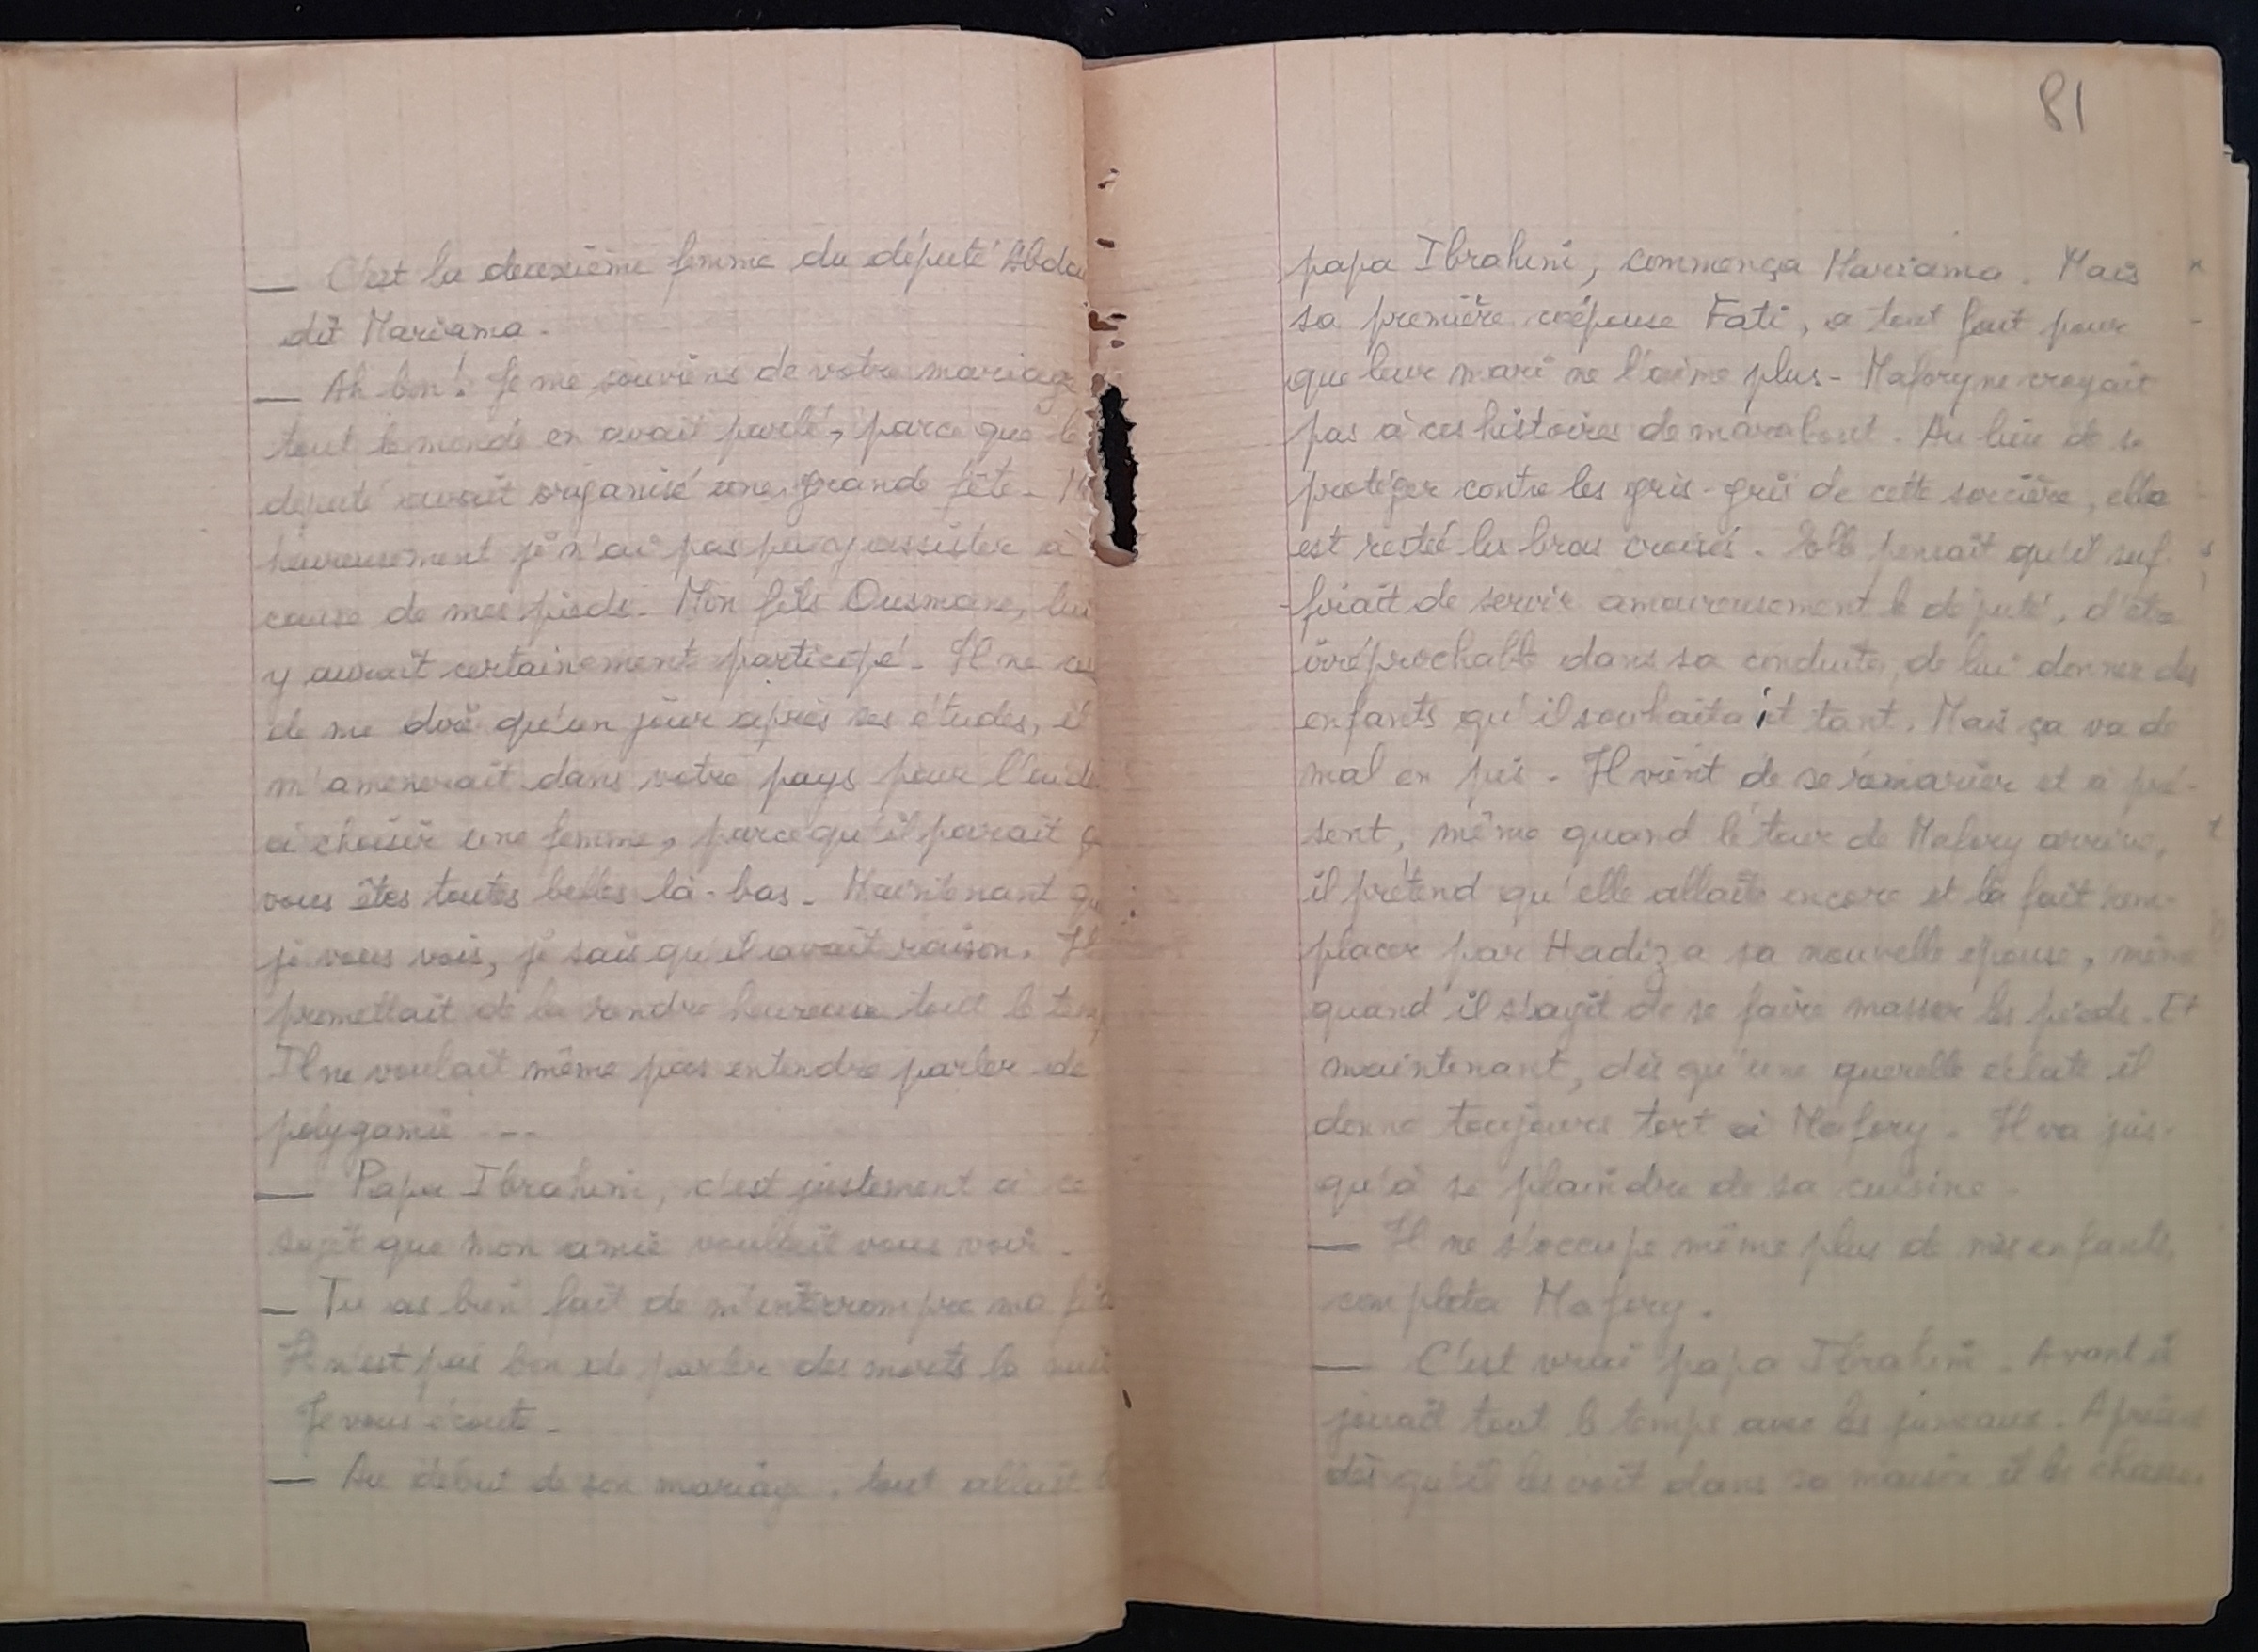 — C'est la deuxième femme du député Abdou
dit Mariama.
— Ah bon! Je me souviens de votre mariage
tout le monde en avait parlé, parce que le
député avait organisé une grande fête. M
heureusement je n'ai pas pu y assister à
cause de mes pieds. Mon fils Ousmane, lui
y aurait certainement participé. Il ne
de me dire qu'un jour après ses études, il
m'amenerait dans votre pays pour l'aider
à choisir une femme, parce qu'il parait
vous êtes toutes belles là-bas. Maintenant
je vous vois, je sais qu'il avait raison. Il
promettait de la rendre heureuse tout le temp
Il ne voulait même pas entendre parler de
polygamie ---
— Papa Ibrahim, c'est justement à ce
sujet que mon amie voulait vous voir.
— Tu as bien fait de m'interrompre ma
Il n'est pas bon de parler des morts la nuit
Je vous écoute.
— Au début de son mariage, tout allait
81
papa Ibrahim, commença Mariama. Mais
sa première coépouse Fati, a tout fait pour
que leur mari ne l'aime plus. Mafory ne croyait
pas à ces histoires de marabout. Au lieu de se
protéger contre les gris-gris de cette sorcière, elle
est restée les bras croisés. Elle pensait qu'il suf-
-firait de servir amoureusement le député, d'être
irréprochable dans sa conduite, de lui donner des
enfants qu'il souhaitait tant. Mais ça va de
mal en pis. Il vient de se remarier et à pré-
sent, même quand le tour de Mafory arrive,
il prétend qu'elle allaite encore et la fait rem-
placer par Hadiza sa nouvelle épouse, même
quand il s'agit de se faire masser les pieds. Et
maintenant, dès qu'une querelle éclate il
donne toujours tort à Mafory. Il va jus-
qu'à se plaindre de sa cuisine.
— Il ne s'occupe même plus de mes enfants,
completa Mafory.
— C'est vrai papa Ibrahim. Avant il
jouait tout le temps avec les jumeaux. A présent
dès qu'il les voit dans sa maison il les chasse